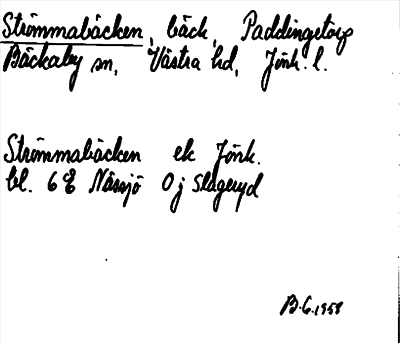 Strömmabäcken, bäck, Paddingetorp
Bäckaby sn, Västra hd, Jönk. l.
Strömmabäcken ek Jönk.
bl. 6E Nässjö 0j Slageryd
B.G. 1958